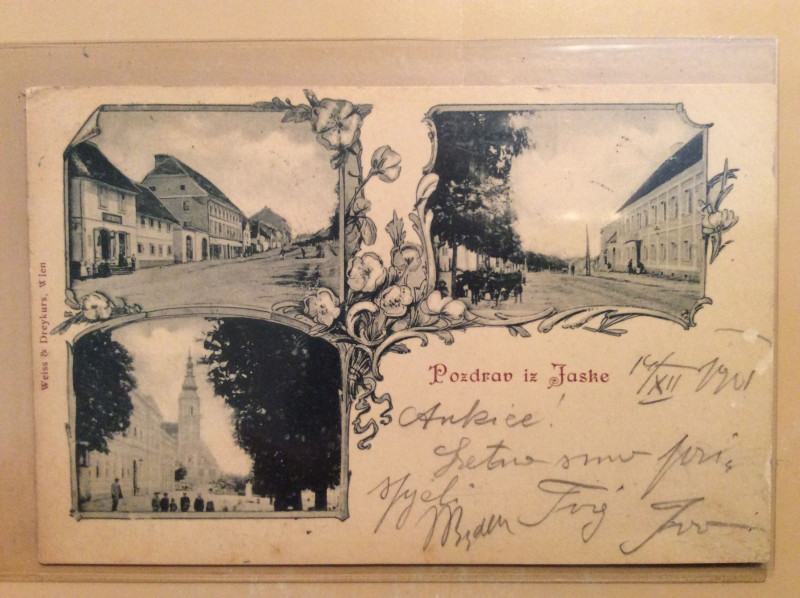 Weiss & Dreykurs, Wien
Pozdrav iz Jaske
14/XII 1901
Ankice!
Sretno smo pri-
spjeli
Tvoj Ivo